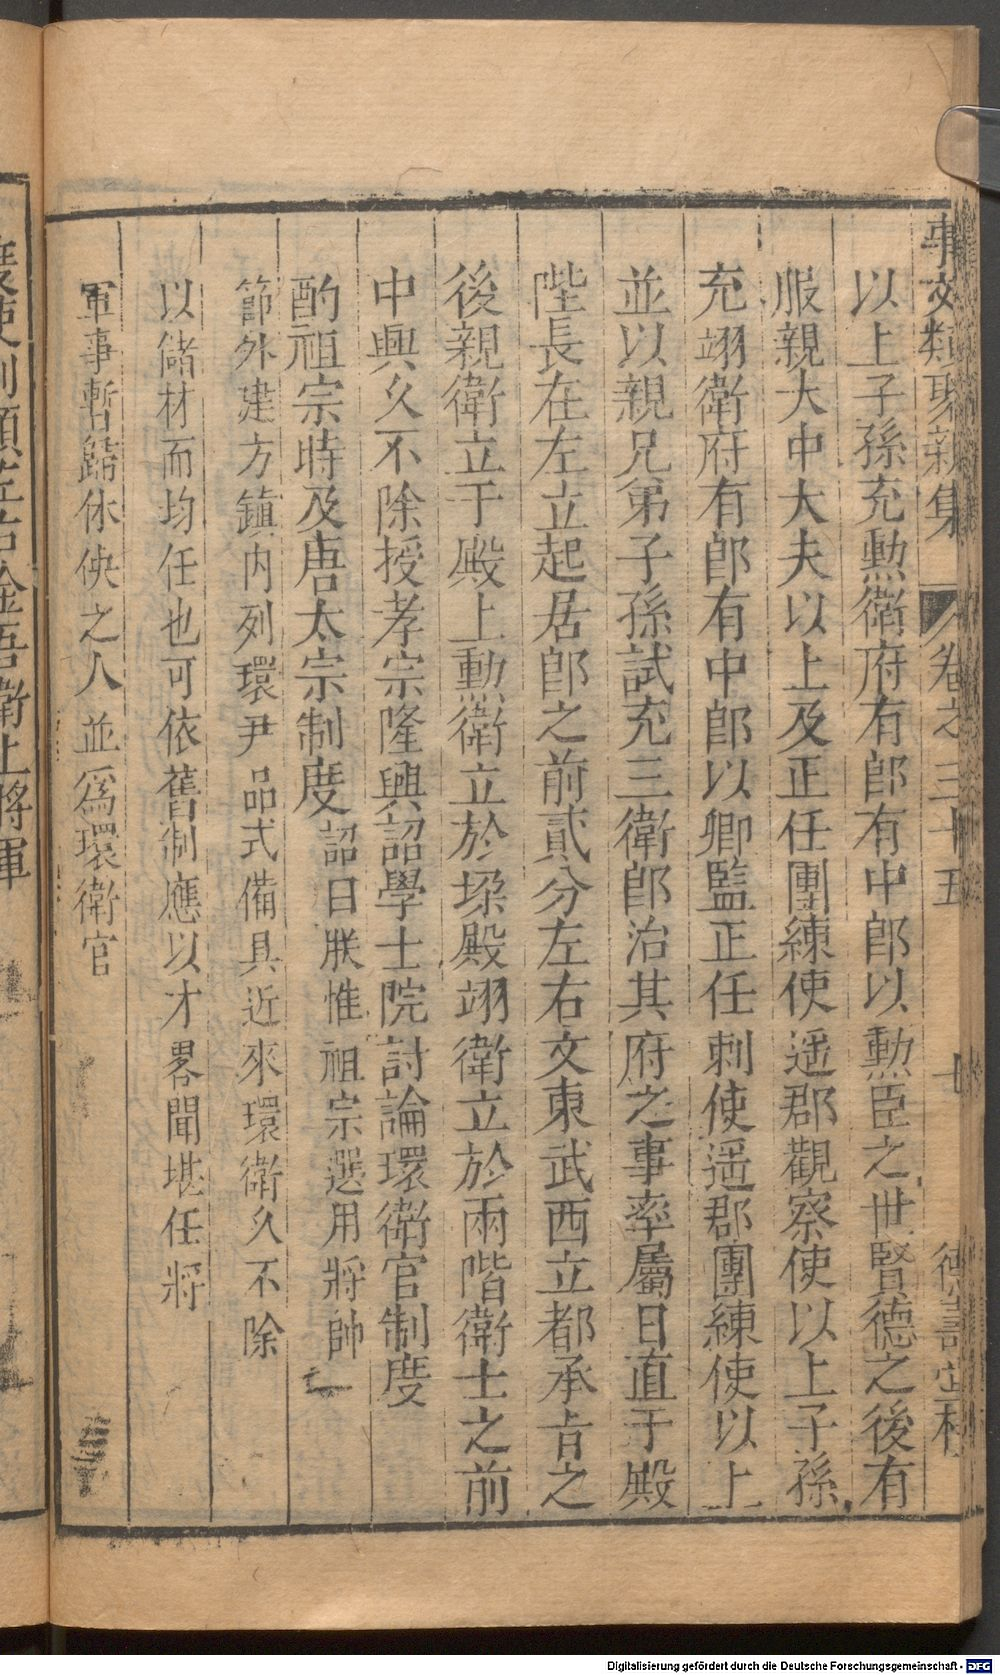 事文類聚新集 卷之三十五 七 德壽堂梓
以上子孫充勲衛府有郎有中郎以勲臣之世賢德之後有
服親大中大夫以上及正任團練使遥郡觀察使以上子孫
充翊衛府有郎有中郎以卿監正任刺使遥郡團練使以上
並以親兄弟子孫試充三衛郎治其府之事率屬日直于殿
陛長在左立起居郎之前貳分左右文東武西立都承旨之
後親衛立于殿上勲衛立於垜殿翊衛立於兩階衛士之前
中興久不除授孝宗隆興詔學士院討論環衛官制度
酌祖宗時及唐太宗制度詔曰朕惟祖宗選用將帥
節外建方鎮内列環尹品式備具近來環衛久不除
以儲材而均任也可依舊制應以才畧聞堪任將
軍事暫歸休佚之人並爲環衛官
度使則領左右金吾衛上將軍
Digitalisierung gefördert durch die Deutsche Forschungsgemeinschaft - DFG